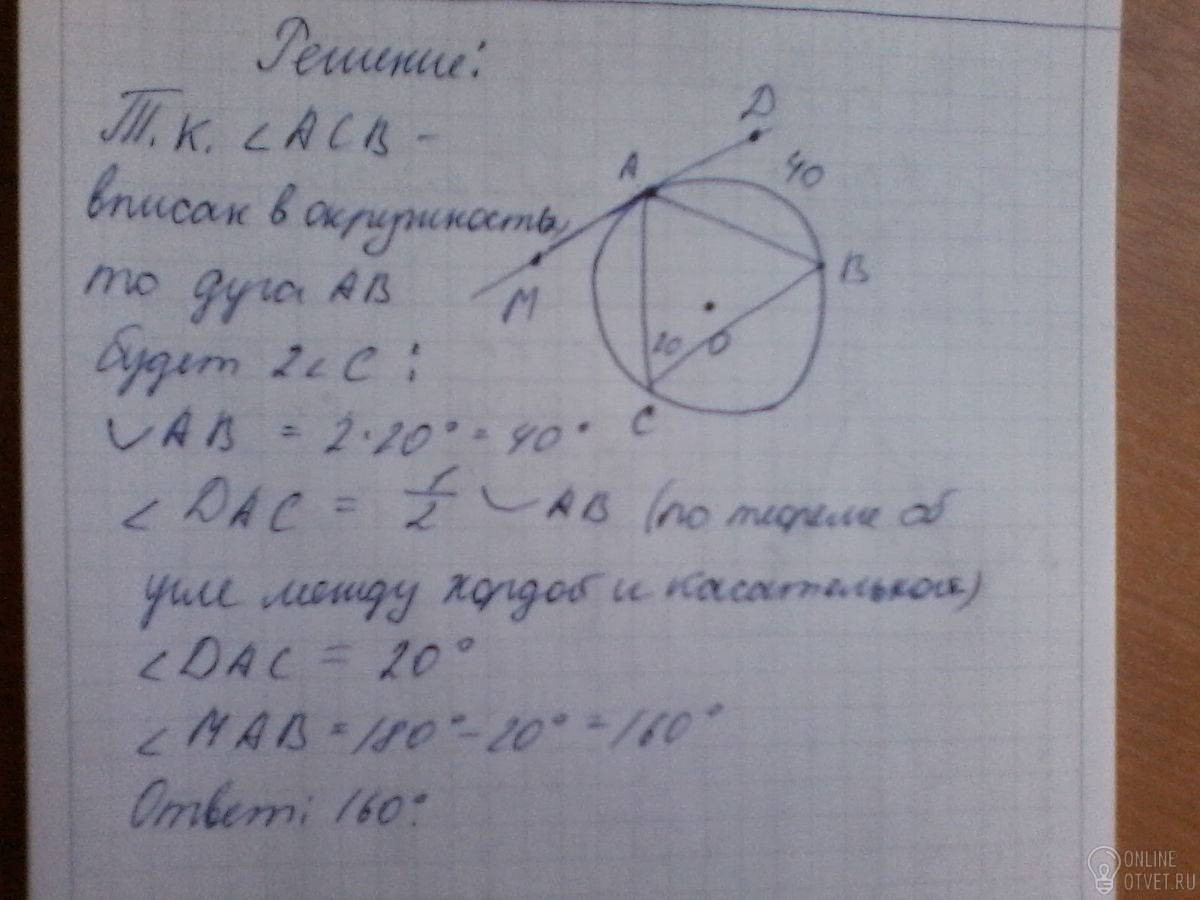 Решение:
Т.к. ∠ACB -
вписан в окружность,
то дуга AB
будет 2∠C:
◡AB = 2·20° = 40°
∠DAC = 1/2 ◡AB (по теореме об
угле между хордой и касательной)
∠DAC = 20°
∠MAB = 180° - 20° = 160°
Ответ: 160°.
D
A
40
B
M
20
O
C
ONLINE
OTVET.RU